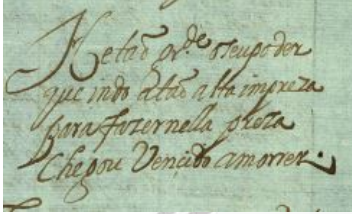 He taõ gr.de o seu poder
que indo a taõ alta impreza
para fazer nella preza
Chegou Vencido a morrer.